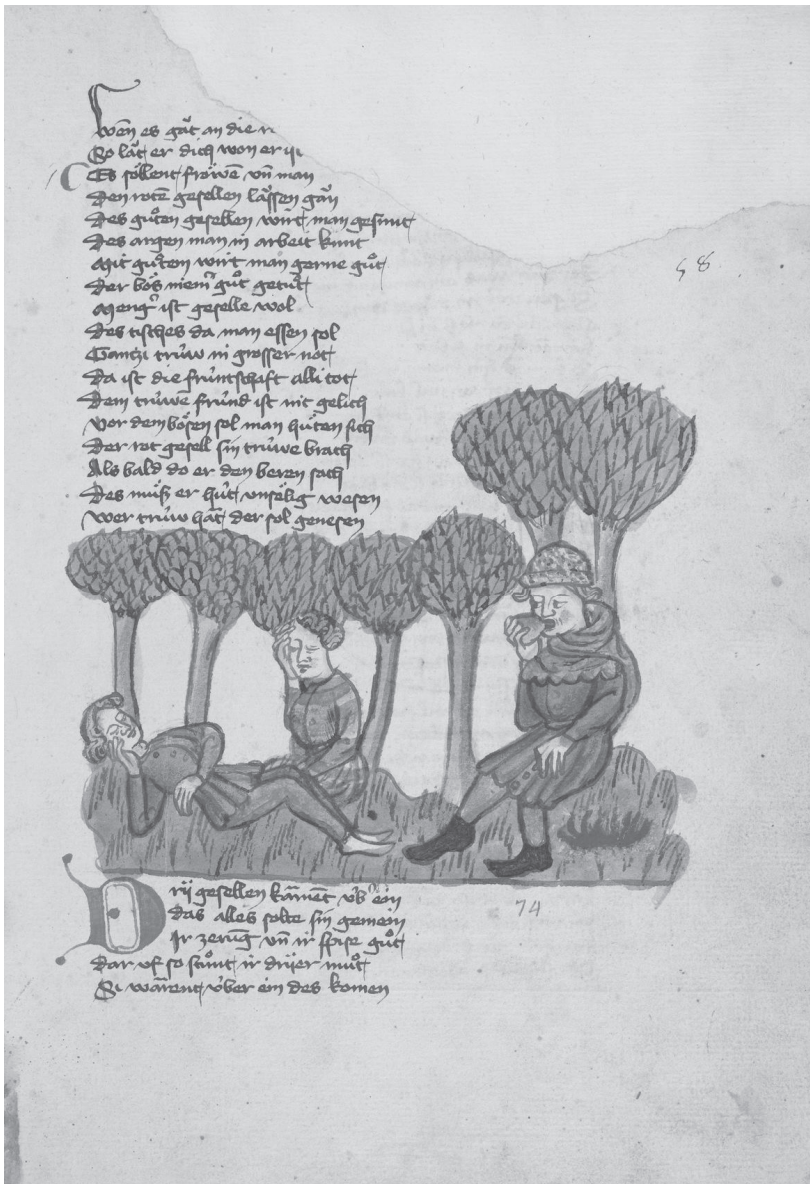 wen es gat an die
So lat er dich won er
Es sollent frowē vn̄ man
Den rotē gesellen lăssen găn
Des gůten gesellen wirt man gesunt
Des argen man in arbeit kunt
Mit gůtem wirt man gerne gůt
Der bős niem̄ gůt getůt
Meng' ist geselle wol
Des tisches da man essen sol
Gantzi trüw in grosser not
Da ist die früntschaft alli tot
Dem trüwē fründ ist nit gelich
Vor dem bősen sol man hüten sich
Der rot gesell sin trüwe brach
Als bald do er den beren sach
Des můß er hüt vnsělig wesen
wer trüw hăt der sol genesen
58
Drij gesellen kāmēt v̈b' ein
das alles solte sin gemein
Ir zerūg vn̄ ir spise gůt
dar vf so stůnt ir drijer můt
Si wārent v̈ber ein des komen
74